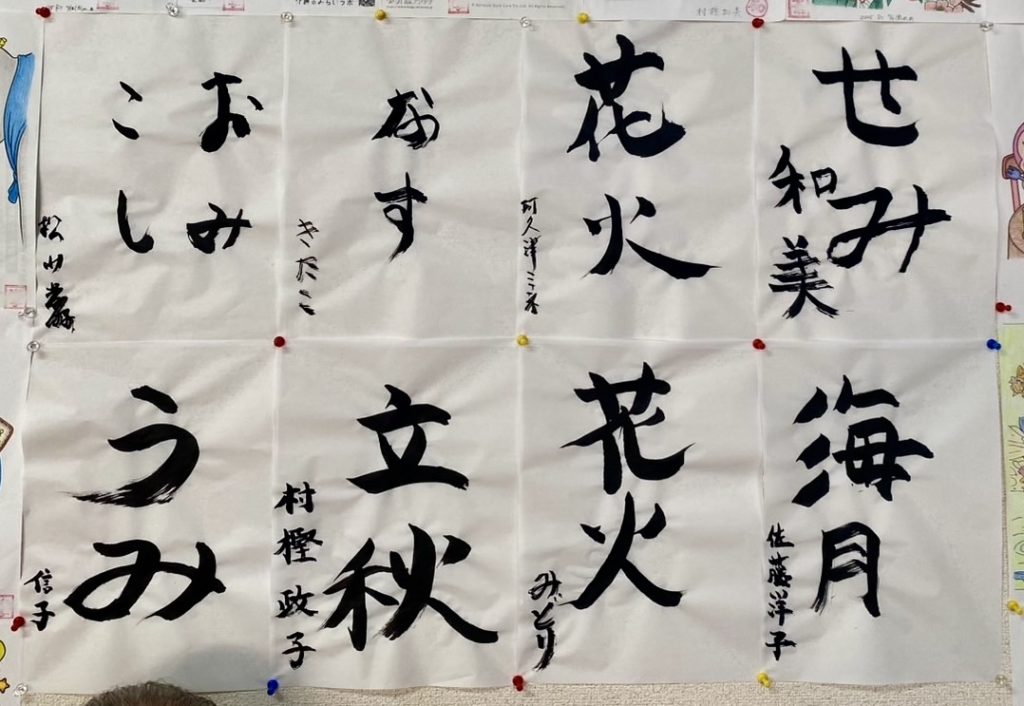 せみ
和美
花火
阿久津
なす
きたこ
おみ
こし
海月
佐藤洋子
花火
みどり
立秋
村樫政子
うみ
信子